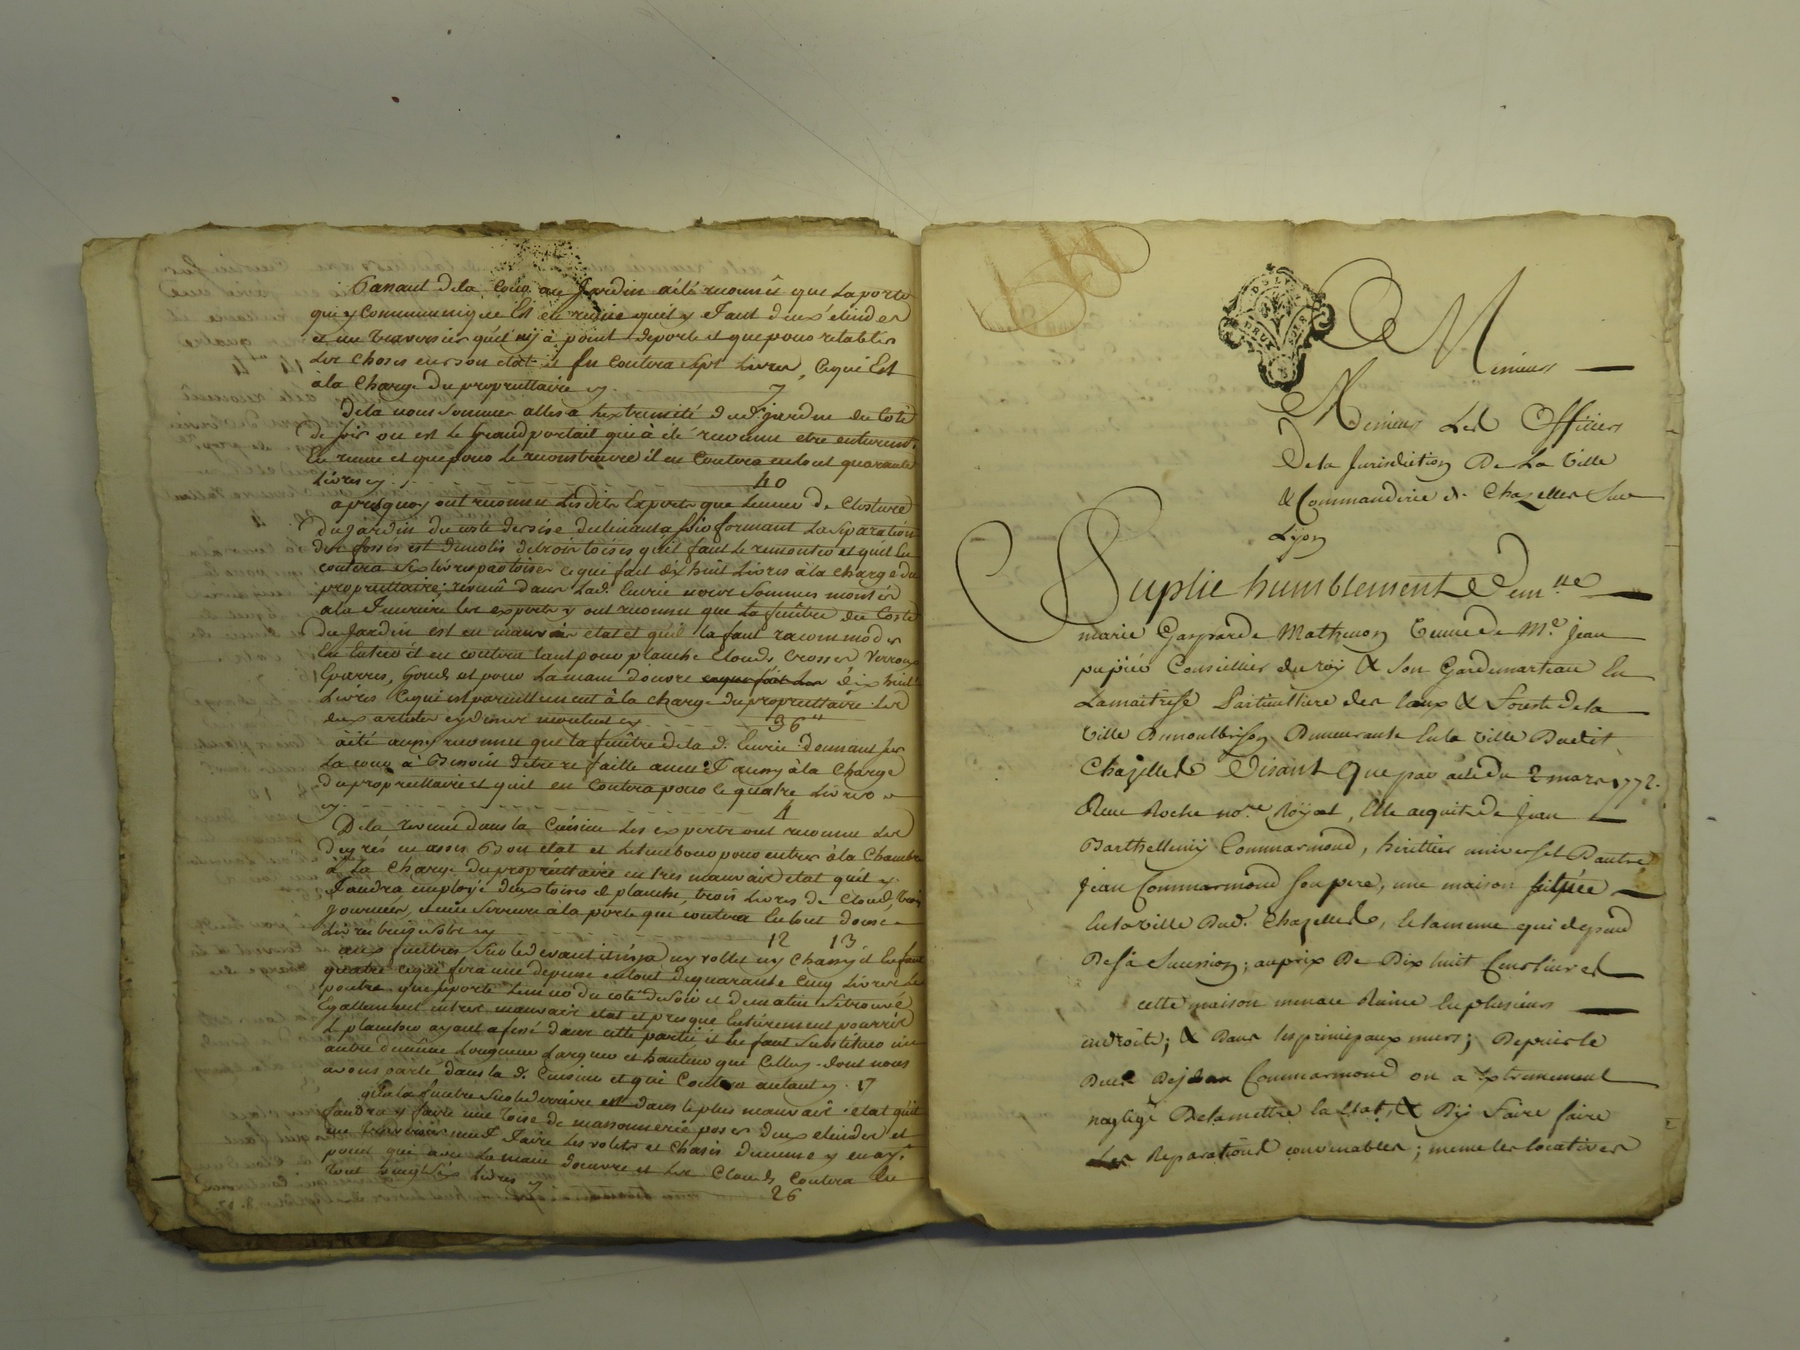 Passant de la cour au Jardin a été reconnût que La porte
qui y Communique Est en ruine quil y faut deux élindes
et un traversier quil n'ij à point de porte et que pour retablir
Les Choses en son etat il En Coutera sept Livres, Ce qui Est
à la Charge du proprietaire y 7
De la nous sommes allés a lextremité dud. jardin du Coté
de soir ou est le Grand portail qui à été reconnu etre entierement
En ruine et que pour le reconstruire il en Coutera en tout quarante
Livres y 40
apres quoy ont reconnu Lesdits Experts que Lemur de Closture
du jardin du coté de bise formant La Separation
des fossés est demolis de trois toises quil faut le remonter et quil En
coutera six livres par toise ce qui fait dix huit Livres à la charge du
proprietaire; revenû dans Lad. Ecurie nous sommes montés
a la feniere les experts y ont reconnu que La fenêtre du Costé
du Jardin est en mauvais etat et qu'il la faut racommoder
En Entier il en coutera tant pour planche Clouds Crosses Verroux
Eparres, Gonds et pour La main d'ouvre dix huit
Livres Ce qui est pareillement à la charge du proprietaire Les
deux articles cy dessus montent y 36
à été aussy reconnu que la fenêtre de la d. Ecurie donnant sur
La cour à Besoin detre refaitte à neuf aussy à la Charge
du proprietaire et quil en Coutera pour ce quatre Livres
y 4
De la revenus dans la Cuisine Les experts ont reconnu Les
degrés en asses Bon etat et pour entrer à la Chambre
à La Charge du proprietaire en tres mauvais etat quil y
Faudra employé deux toises de planche, trois Livres de Cloud, trois
journées, et une serrure à la porte qui coutera En tout douse
Livres 12 13
aux fenêtres sur le devant il n'ij a ny vollet ny Chassy il En faut
quatre ce qui fera une depense en tout de quarante Cinq Livres Le
poutre qui suporte du coté de soir et de matin se trouve
Egallement en tres mauvais etat et presque Entierement pourrie
Le planchер ayant afessé dans cette partie il En faut Substituer une
autre de même Longueur Largeur et hauteur que Celluy dont nous
avons parlé dans la d. Cuisine et qui Coutera autant y 17
que la fenêtre sur le derriere est dans le plus mauvais etat quil
faudra y faire une toise de massonnerie poser deux elindes et
un traversier neuf Faire Les volets et Chasis
point que avec La main douvre et Les Clouds Coutera En
tout vingt six Livres y 26
Messieurs
Messieurs Les Officiers
De la Jurisdiction De La Ville
& Commanderie de Chazelles Sur
Lyon
Suplie humblement Dem.lle
marie Gasparde Mathevon Veuve de M.e Jean
pupier Conseiller du roy & Son Gardemarteau En
La maitrise Particulliere des Eaux & Forest de la
Ville De montbrison Demeurante En la Ville Dudit
Chazelles Disant Que par acte du 2 mars 1772.
Reçu Roche no.re Royal, Elle acquit de Jean
Barthellemy Commarmond, heritier universel D'autre
Jean Commarmond Son pere, une maison scituée
En la ville Dud. Chazelles, & la meme qui depend
De sa Succession; au prix De Dix huit Cens Livres
cette maison menace Ruine En plusieurs
endroits; & Dans les principaux murs; Depuis le
Decès Dejean Commarmond on a Extremement
negligé De la mettre En Etat, & D'y Faire faire
Les Reparations convenables; meme les locatives